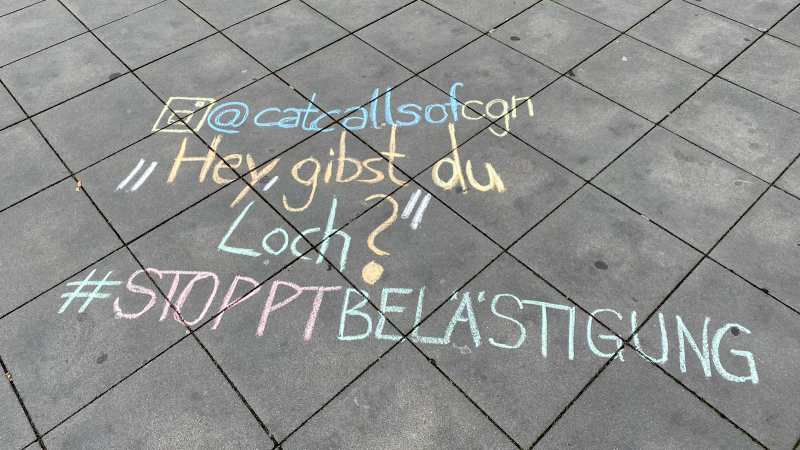 @catcallsofcgn
"Hey, gibst du
Loch?"
#STOPPTBELÄSTIGUNG